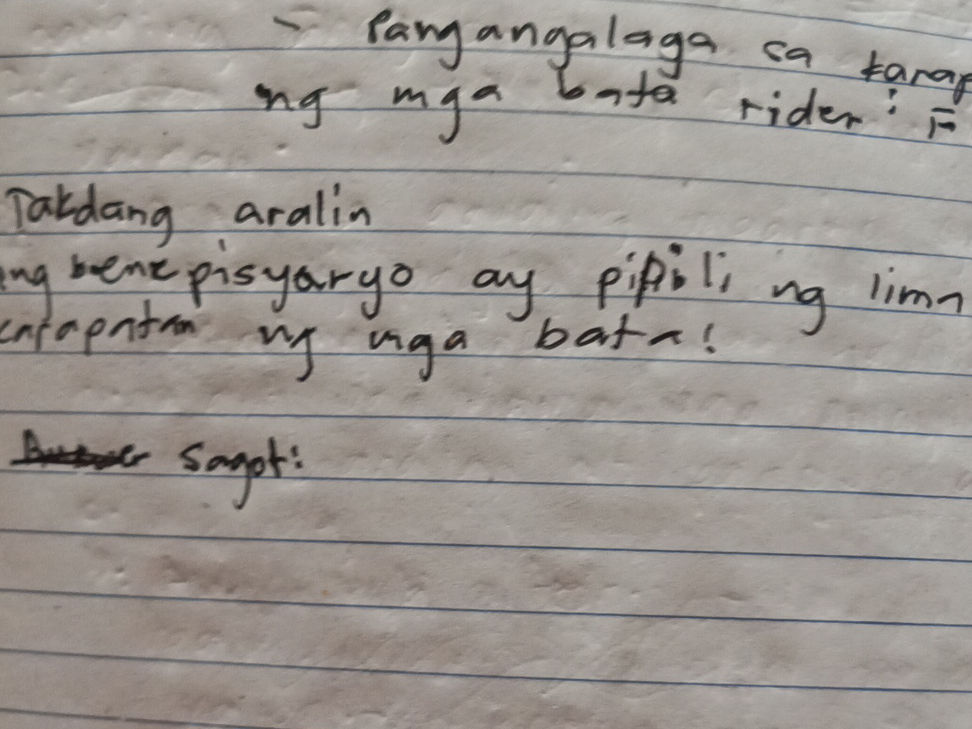 - Pangangalaga sa karap
ng mga bata rider:
Takdang aralin
ng benepisyaryo ay pipili ng lima
karapatan ng mga bata!
Sagot: